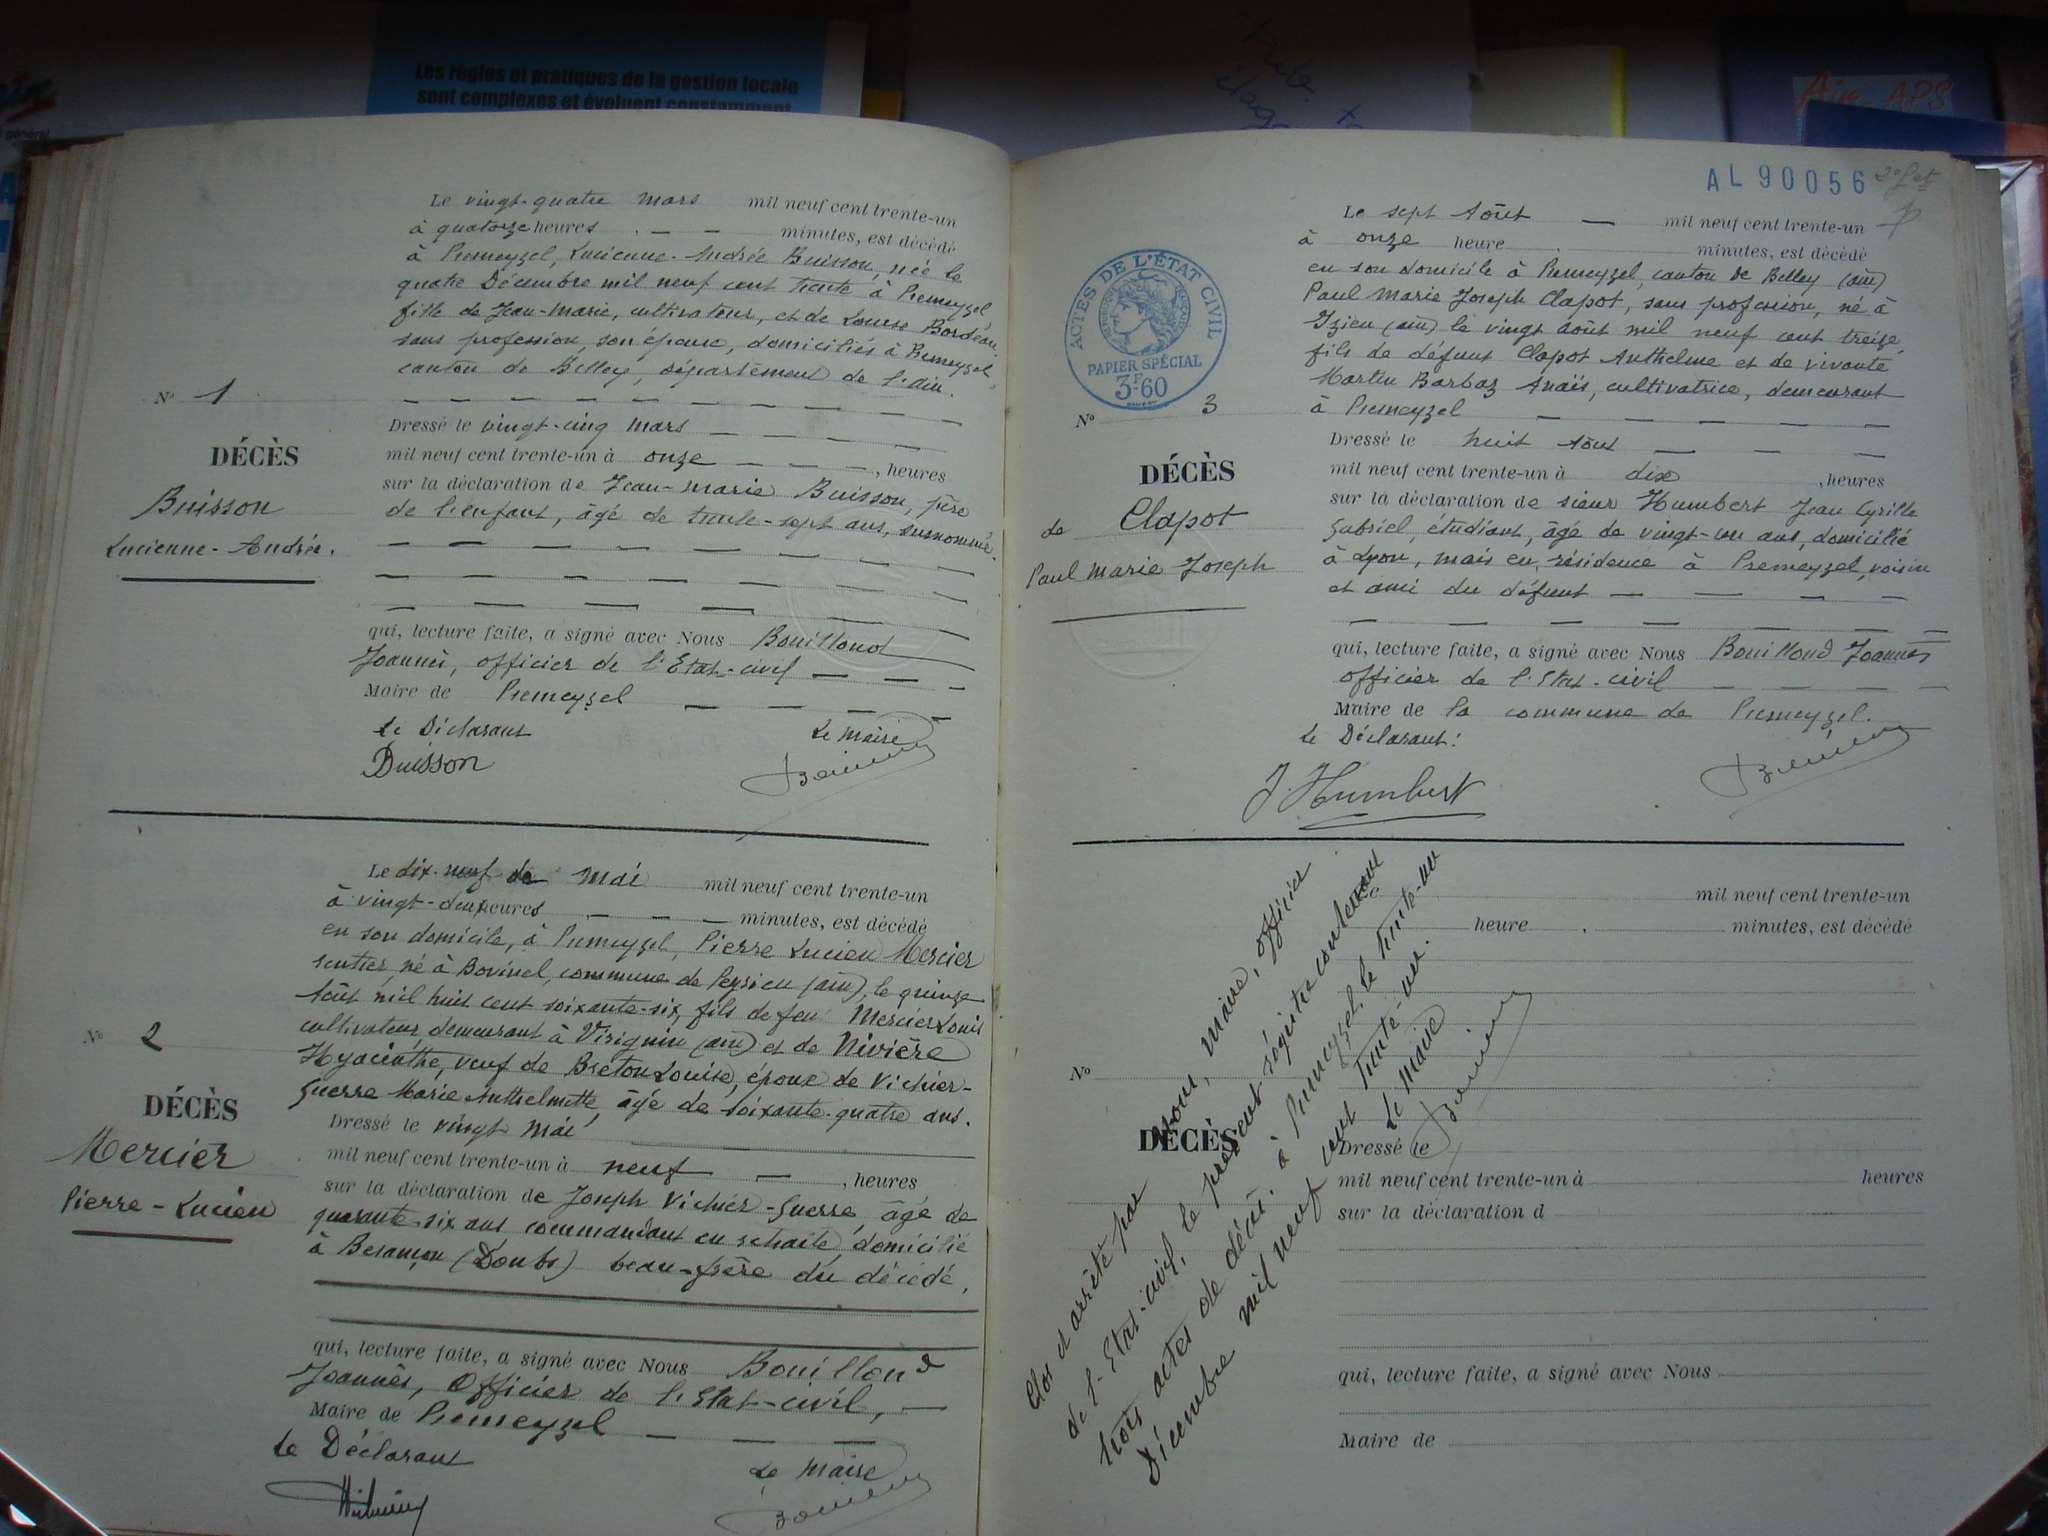 Les règles et pratiques de la gestion locale
sont complexes et évoluent constamment
général
Ain-APS
Le vingt-quatre mars mil neuf cent trente-un
à quatorze heures — — minutes, est décédé
à Premeyzel, Lucienne-Andrée Buisson, née le
quatre Décembre mil neuf cent trente à Premeyzel
fille de Jean-Marie, cultivateur, et de Louise Bordeau,
sans profession, son épouse, domiciliés à Premeyzel,
canton de Belley, département de l'Ain.
N° 1
DÉCÈS
Buisson
Lucienne-Andrée.
Dressé le vingt-cinq mars
mil neuf cent trente-un à onze, heures
sur la déclaration de Jean-Marie Buisson, père
de l'enfant, âgé de trente-sept ans, surnommé.
qui, lecture faite, a signé avec Nous Bouillond
Joannès, officier de l'Etat-civil
Maire de Premeyzel
Le Déclarant Le Maire
Buisson
Le dix-neuf de Mai mil neuf cent trente-un
à vingt-deux heures — — — minutes, est décédé
en son domicile, à Premeyzel, Pierre Lucien Mercier
rentier, né à Bovinel, commune de Peyrieu (ain), le quinze
Août mil huit cent soixante-six, fils de feu Mercier Louis
cultivateur, demeurant à Virignin (ain) et de Nivière
Hyacinthe, veuf de Breton Louise, époux de Vichier-
Guerre Marie Anthelmette, âgé de soixante-quatre ans.
N° 2
DÉCÈS
Mercier
Pierre-Lucien
Dressé le vingt Mai
mil neuf cent trente-un à neuf, heures
sur la déclaration de Joseph Vichier-Guerre, âgé de
quarante-six ans commandant en retraite, domicilié
à Besançon (Doubs) beau-frère du décédé.
qui, lecture faite, a signé avec Nous Bouillond
Joannès, Officier de l'Etat-civil,
Maire de Premeyzel
Le Déclarant
Le Maire
AL 90056
Le sept Août — mil neuf cent trente-un
à onze heure minutes, est décédé
en son domicile à Premeyzel, canton de Belley (ain)
Paul Marie Joseph Clapot, sans profession, né à
Izieu (ain) le vingt août mil neuf cent treize,
fils de défunt Clapot Anthelme et de vivante
Martin Barbaz Anaïs, cultivatrice, demeurant
à Premeyzel
ACTES DE L'ÉTAT CIVIL
RÉPUBLIQUE FRANÇAISE
PAPIER SPÉCIAL
3F60
N° 3
DÉCÈS
de Clapot
Paul Marie Joseph
Dressé le huit Août
mil neuf cent trente-un à dix, heures
sur la déclaration de sieur Humbert Jean Cyrille
Gabriel, étudiant, âgé de vingt-un ans, domicilié
à Lyon, mais en résidence à Premeyzel, voisin
et ami du défunt
qui, lecture faite, a signé avec Nous Bouillond Joannès
officier de l'Etat-civil
Maire de la commune de Premeyzel.
Le Déclarant:
J. Humbert
Le mil neuf cent trente-un
heure minutes, est décédé
N°
DÉCÈS
Dressé le
mil neuf cent trente-un à heures
sur la déclaration d
qui, lecture faite, a signé avec Nous
Maire de
Clos et arrêté par nous, maire, officier
de l'Etat-civil, le présent régistre contenant
trois actes de décès. à Premeyzel, le trente-un
Décembre mil neuf cent trente-un.
Le Maire